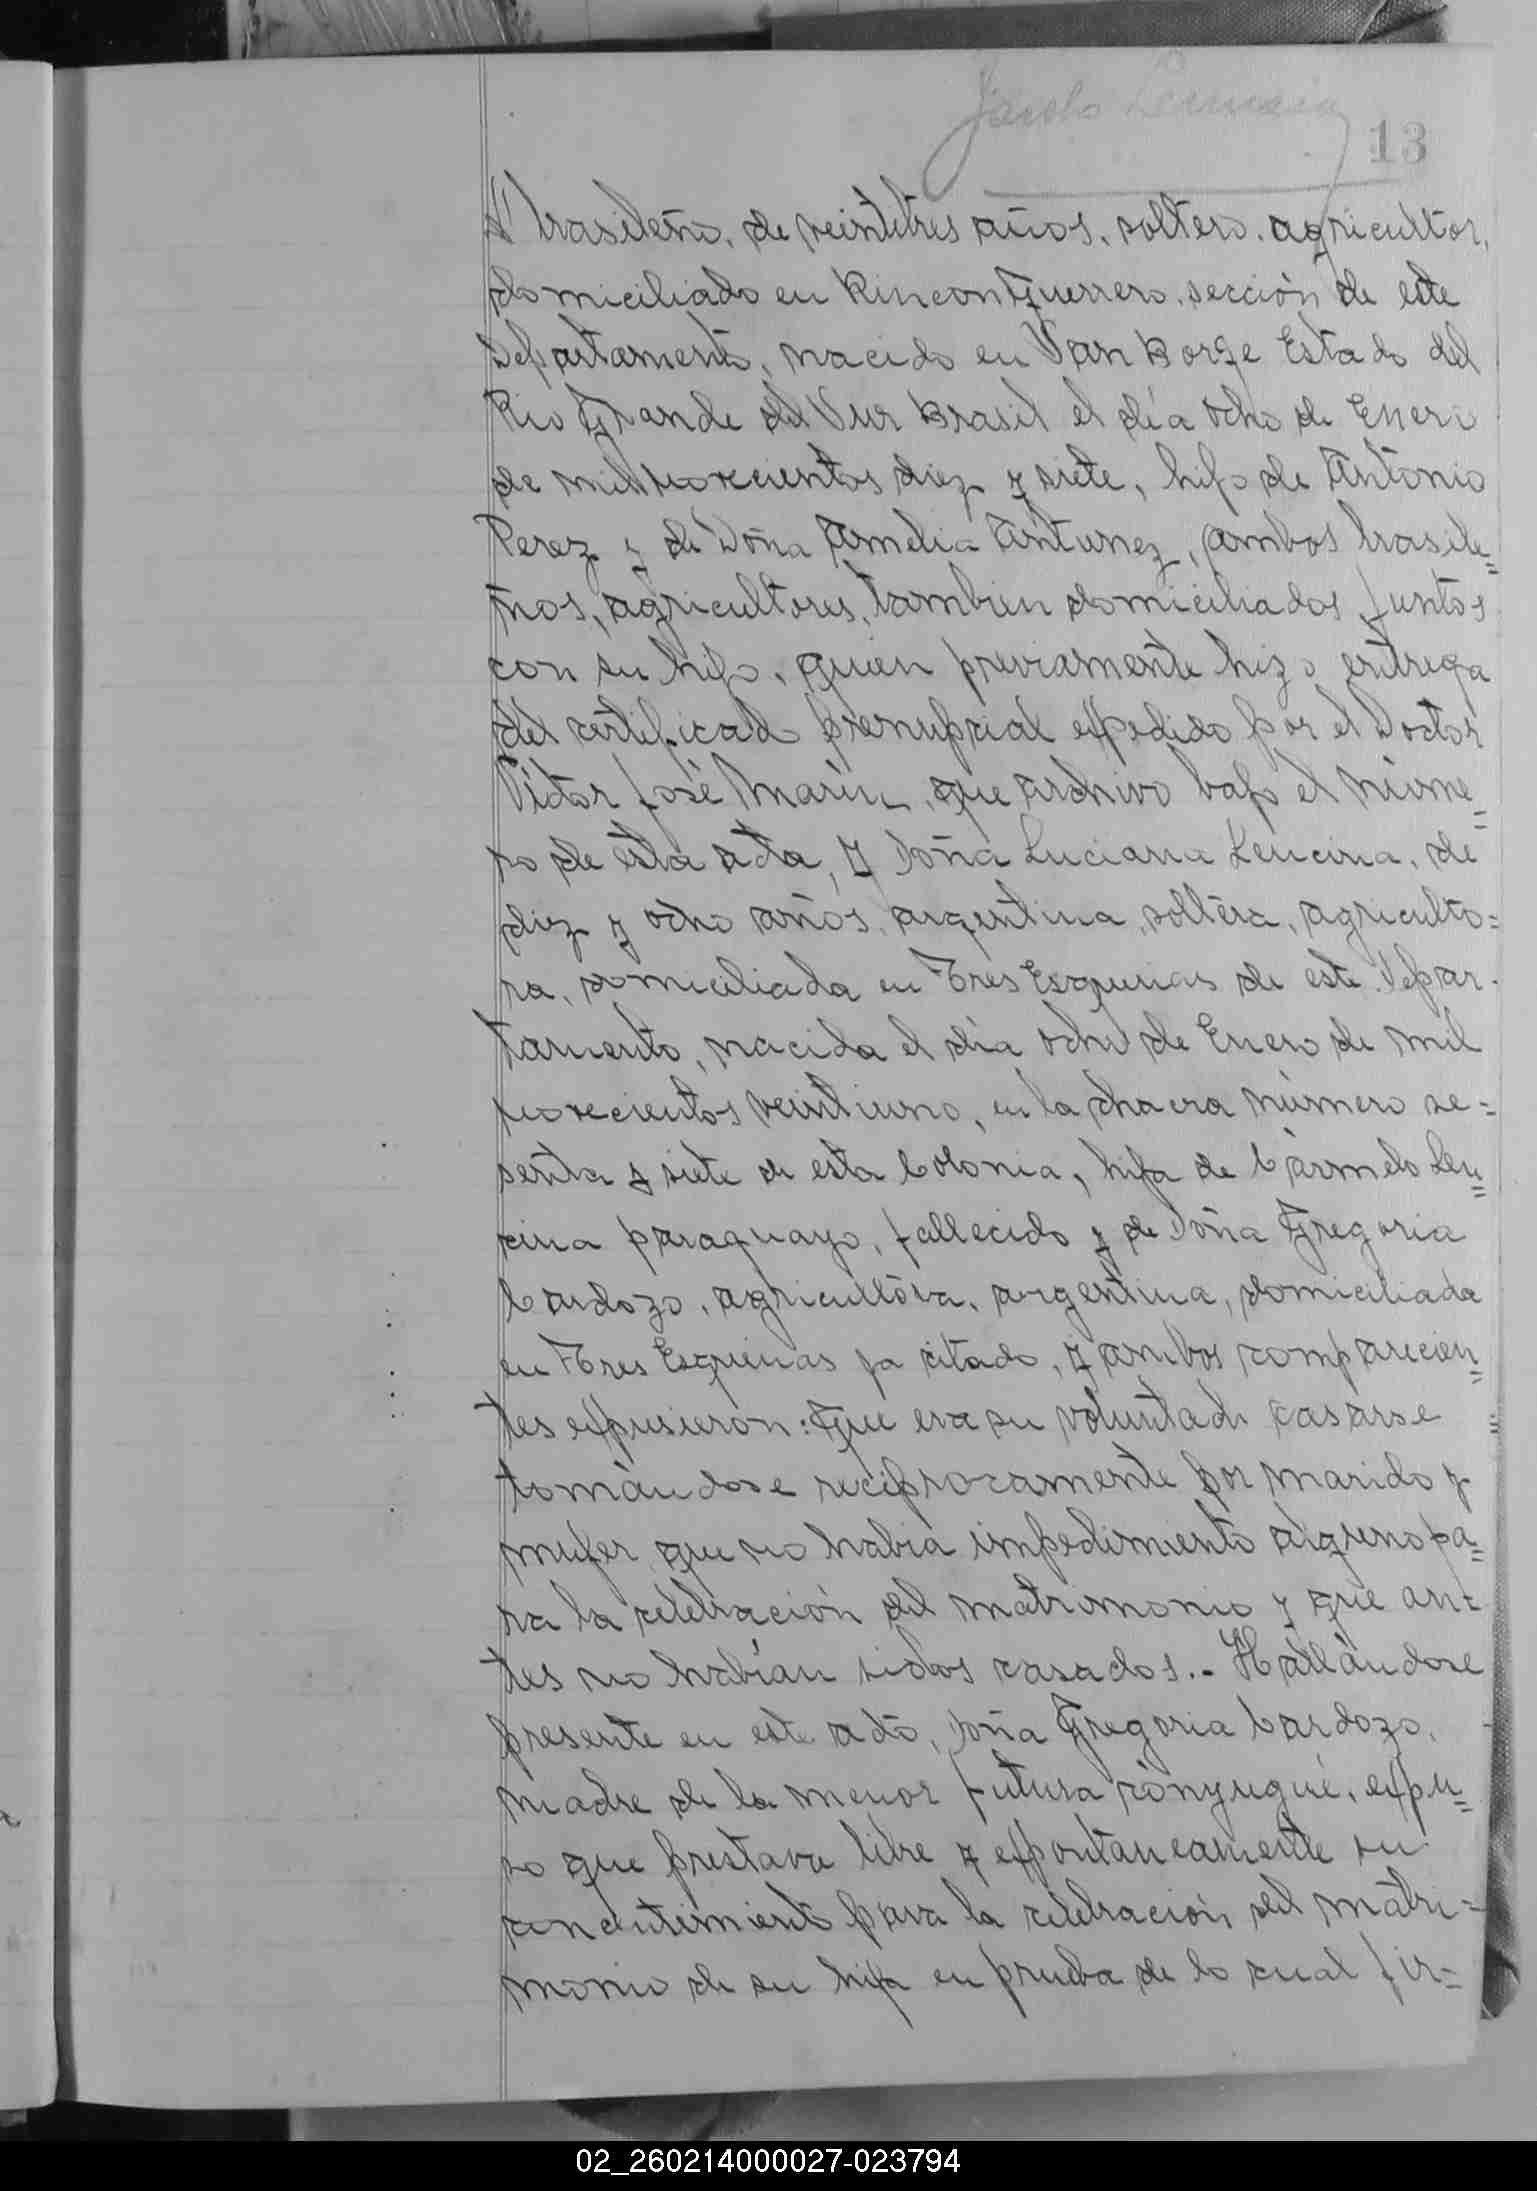 13
brasileño, de veintitres años, soltero, agricultor,
domiciliado en Rincon Guerrero, sección de este
Departamento, nacido en San Borge Estado del
Rio Grande del Sur Brasil el día ocho de Enero
de mil novecientos diez y siete, hijo de Antonio
Perez y de Doña Amelia Antunez, ambos brasile=
ños, agricultores, tambien domiciliados juntos
con su hijo, quien previamente hizo entrega
del certificado prenupcial expedido por el Doctor
Víctor José Marin, que archivo bajo el núme=
ro de esta acta, y Doña Luciana Lencina, de
diez y ocho años, argentina, soltera, agriculto=
ra, domiciliada en Tres Esquinas de este Depar-
tamento, nacida el día ocho de Enero de mil
novecientos veintiuno, en la chacra número se=
senta y siete de esta Colonia, hija de Cármelo Len=
cina paraguayo, fallecido y de Doña Gregoria
Cardozo, agricultora, argentina, domiciliada
en Tres Esquinas ya citado, y ambos comparecien=
tes expusieron: Que era su voluntad casarse
tomándose reciprocamente por marido y
mujer, que no habia impedimiento alguno pa=
ra la celebración del matrimonio y que an=
tes no habían sidos casados.- Hallándose
presente en este acto, Doña Gregoria Cardozo,
madre de la menor futura cónyugué, expu=
so que prestava libre y expontaneamente su
concentimiento para la celebración del matri=
monio de su hija en prueba de lo cual fir=
02_260214000027-023794